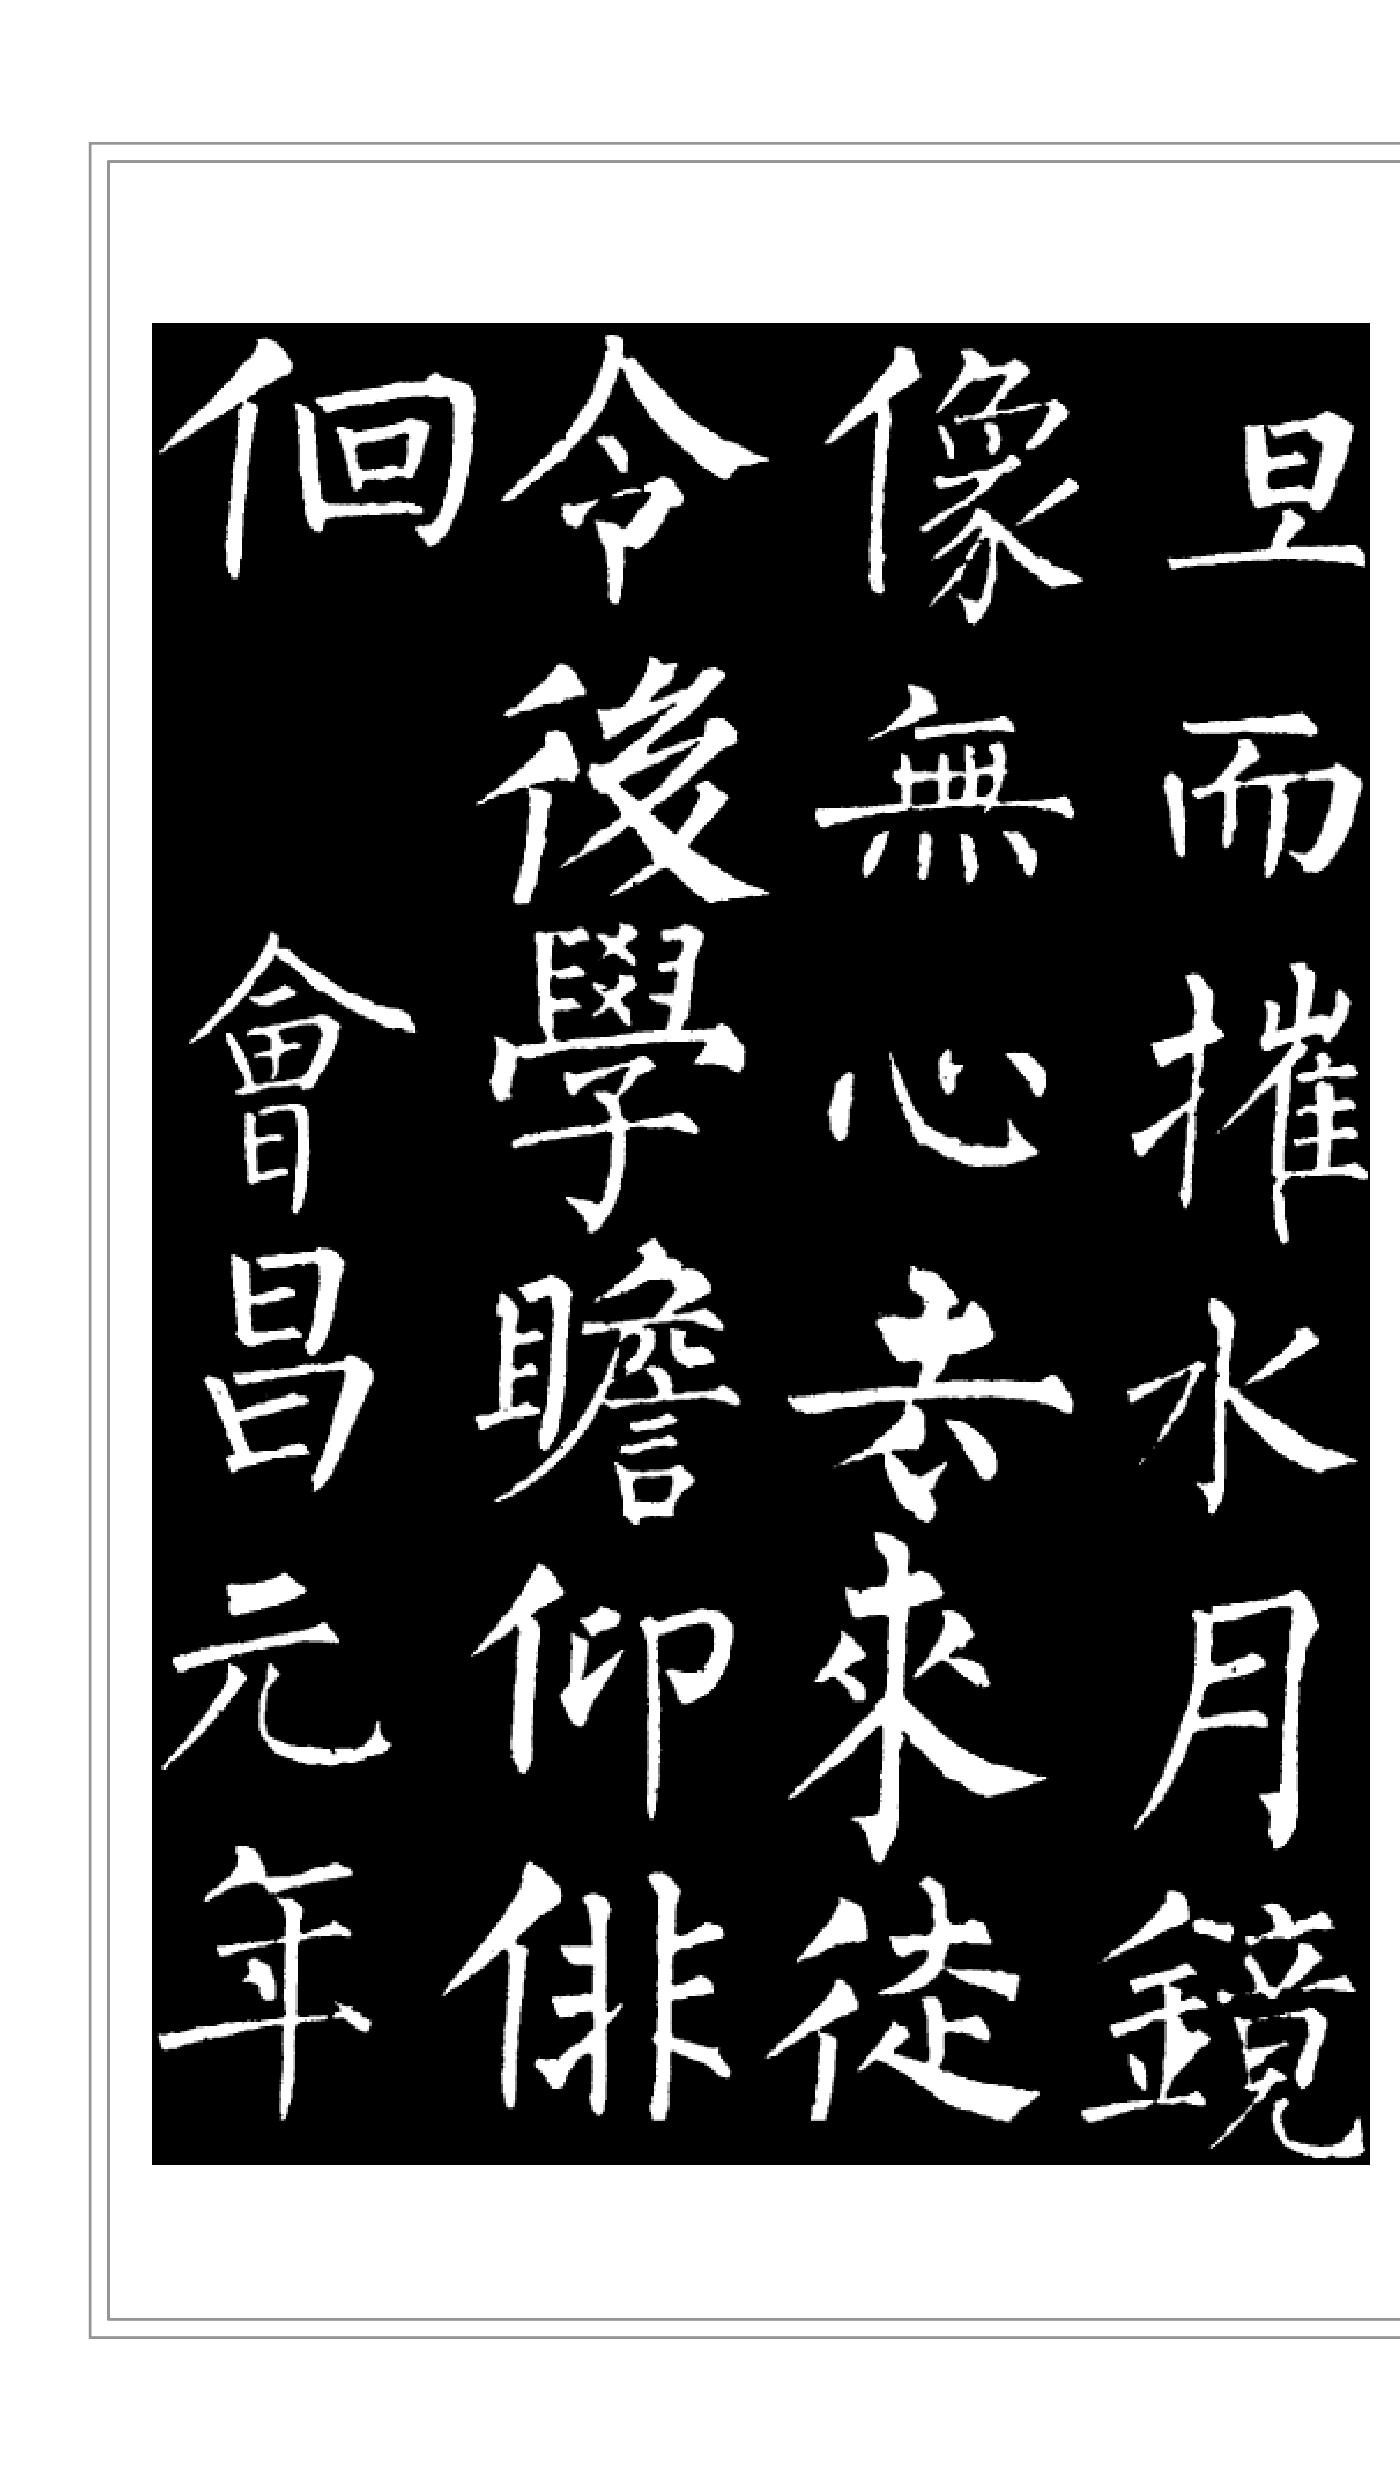 旦而摧水月鏡
像無心去來徒
令後學瞻仰俳
佪會昌元年